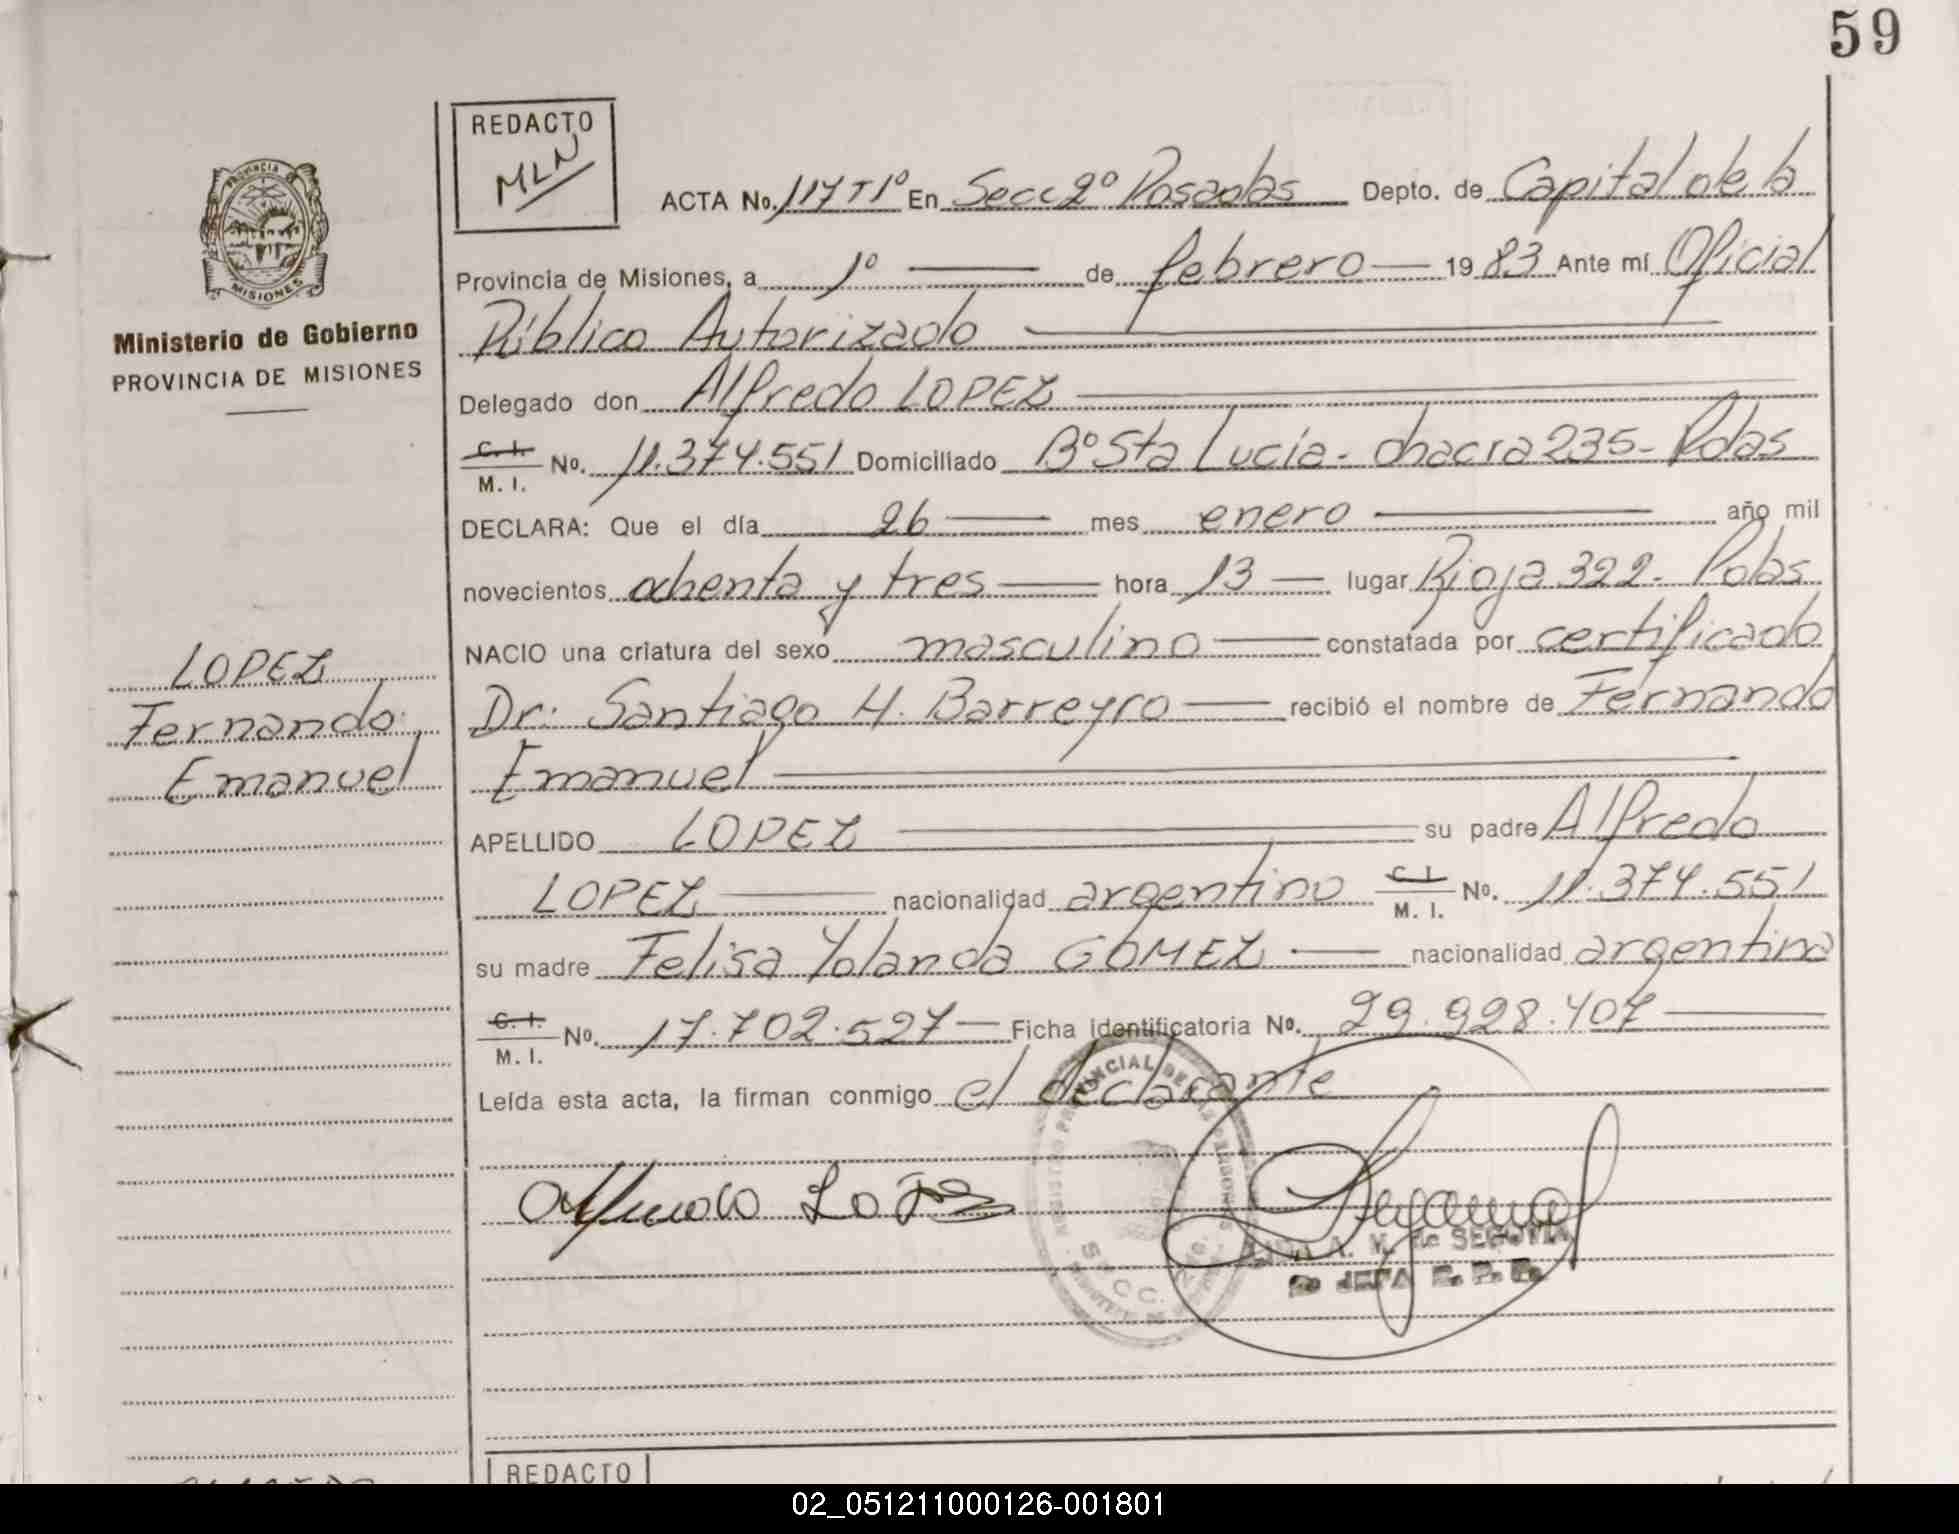 59
REDACTO
MLN
ACTA No. 117 T1º En Secc 2º Posadas Depto. de Capital de la
PROVINCIA DE
MISIONES
Provincia de Misiones, a 1º de febrero 1983 Ante mí Oficial
Ministerio de Gobierno
PROVINCIA DE MISIONES
Público Autorizado
Delegado don Alfredo LOPEZ
C. I. M. I. No. 11.374.551 Domiciliado Bº Sta Lucía - chacra 235 - Pdas
DECLARA: Que el día 26 mes enero año mil
novecientos ochenta y tres hora 13 lugar Rioja 322 - Pdas
NACIO una criatura del sexo masculino constatada por certificado
LOPEZ
Fernando
Emanuel
Dr. Santiago H. Barreyro recibió el nombre de Fernando
Emanuel
APELLIDO LOPEZ su padre Alfredo
LOPEZ nacionalidad argentino C. I. M. I. No. 11.374.551
su madre Felisa Yolanda GOMEZ nacionalidad argentina
C. I. M. I. No. 17.702.527 Ficha identificatoria No. 29.928.407
Leída esta acta, la firman conmigo el declarante
REGISTRO PROVINCIAL DE LAS PERSONAS
SECC.
Alfredo Lopez
A. M. de SEGOVIA
JEFA
REDACTO
02_051211000126-001801